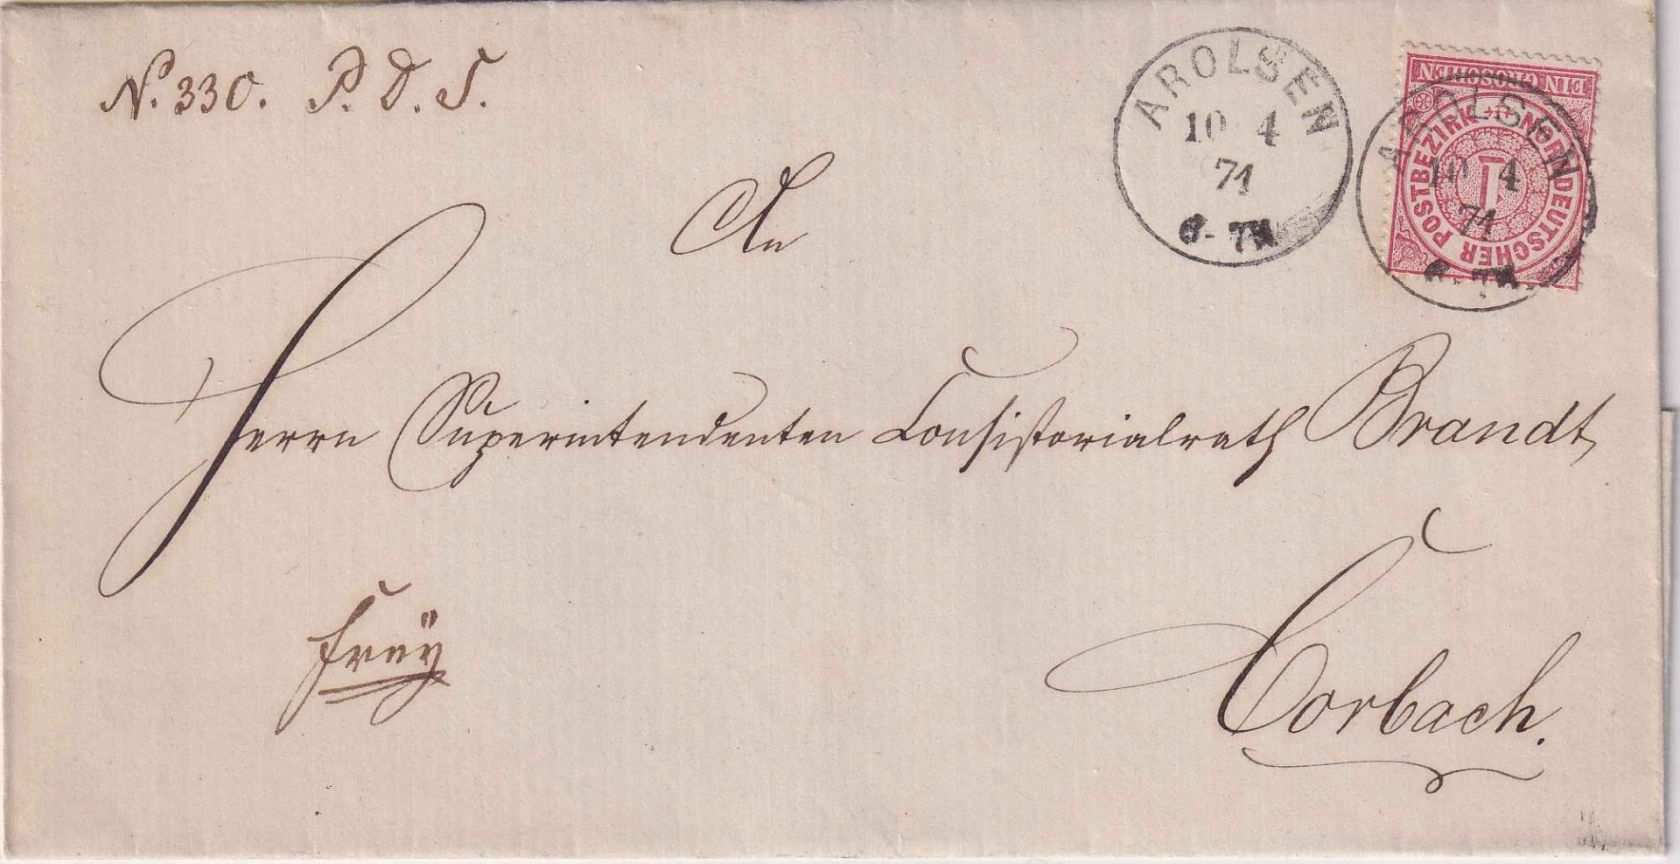 N. 330. P. D. S.
AROLSEN
10 4
71
6-7N
EIN GROSCHEN
NORDDEUTSCHER POSTBEZIRK
1
AROLSEN
10 4
71
6-7N
An
Herrn Superintendenten Consistorialrath Brandt
frey
Corbach.